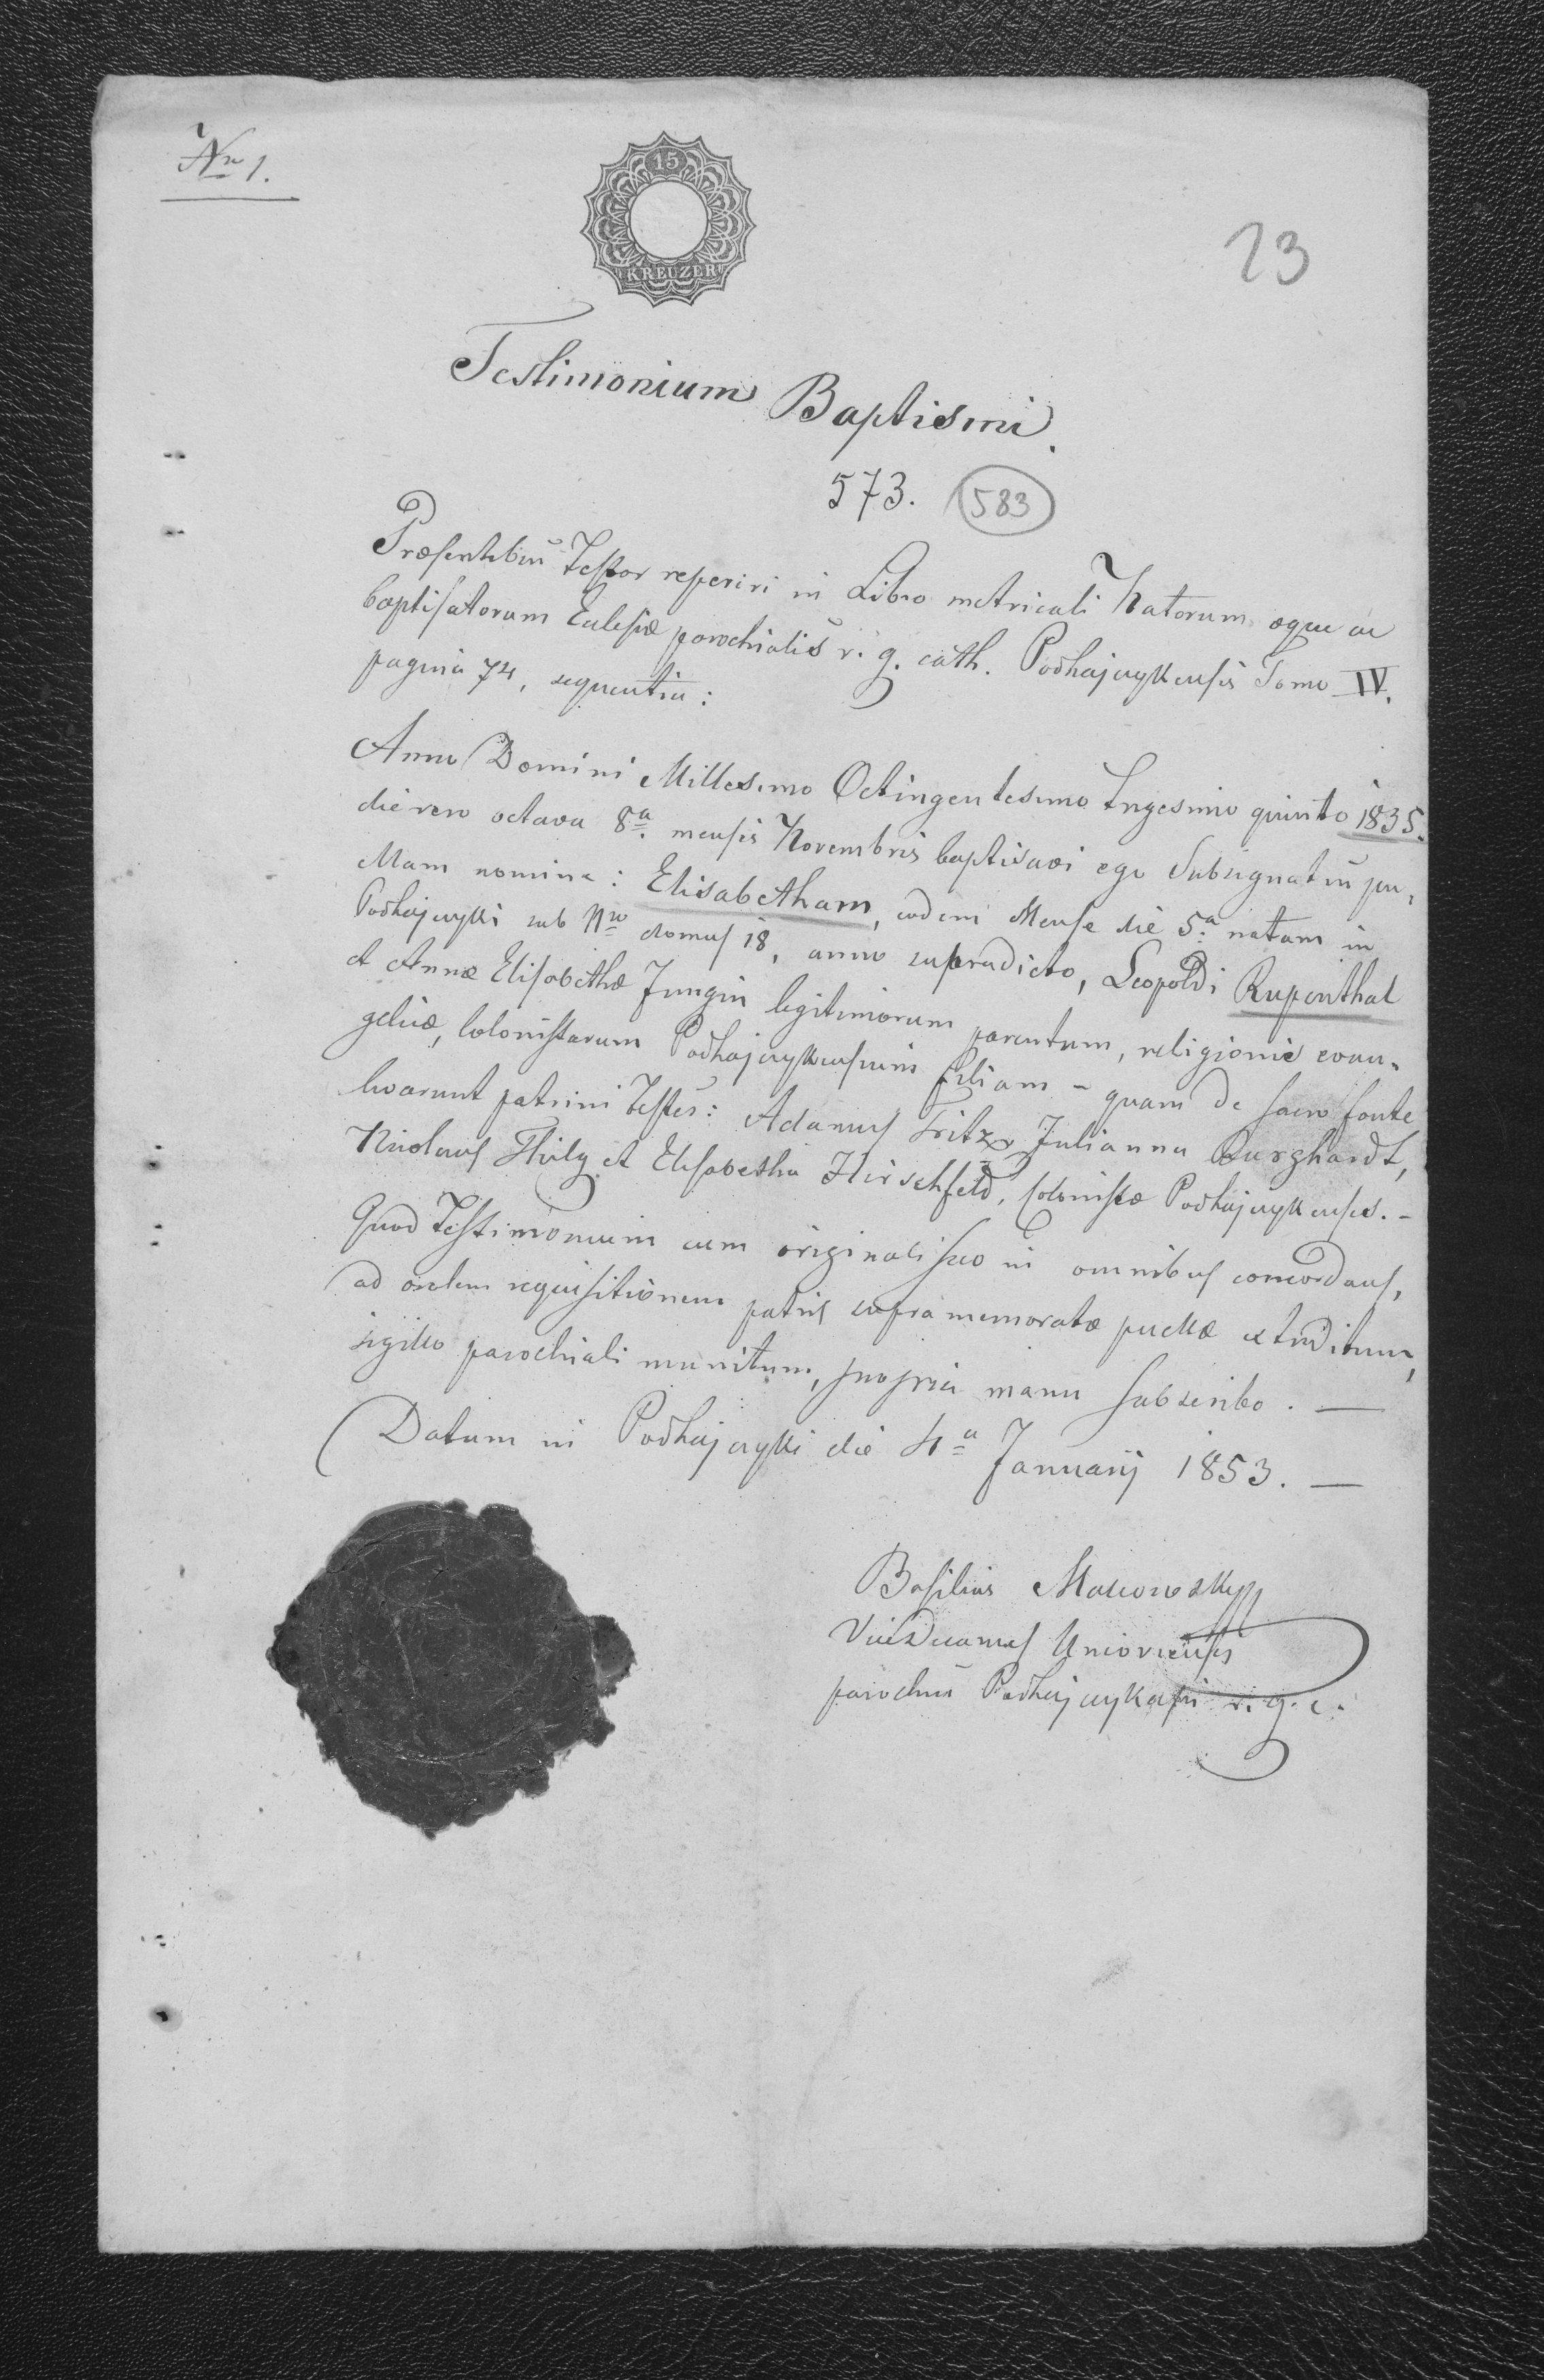 Nr 1.
15
KREUZER
23
Testimonium Baptismi.
573. 583
Præsentibus Testor reperiri in Libro metricali Natorum æque ac
baptisatorum Eclesiæ parochialis r. g. cath. Podhajczykensis Tomo IV.
pagina 74, sequentia:
Anno Domini Millesimo Octingentesimo Trigesimo quinto 1835.
die vero octava 8a mensis Novembris baptisavi ego Subsignatus pu,
ellam nomine: Elisabetham, eodem Mense die 5a natam in
Podhajczyki sub Nro domus 18, anno supradicto, Leopoldi Rupenthal
et Annæ Elisabethæ Jungin legitimorum parentum, religionis evan-
gelicæ, Colonistarum Podhajczykensium filiam - quam de sacro fonte
levarunt patrini Testes: Adamus Fritz, Julianna Burghardt,
Nicolaus Thily et Elisabetha Hirschfeld, Colonistæ Podhajczykenses. -
Quod Testimonium cum originali suo in omnibus concordans,
ad oralem requisitionem patris supra memoratæ puellæ extraditum,
sigillo parochiali munitum, propria manu subscribo. —
Datum in Podhajczyki die 4a Januarij 1853. —
Basilius
ViceDecanus
parochus Podhajczykensis r. g. c.